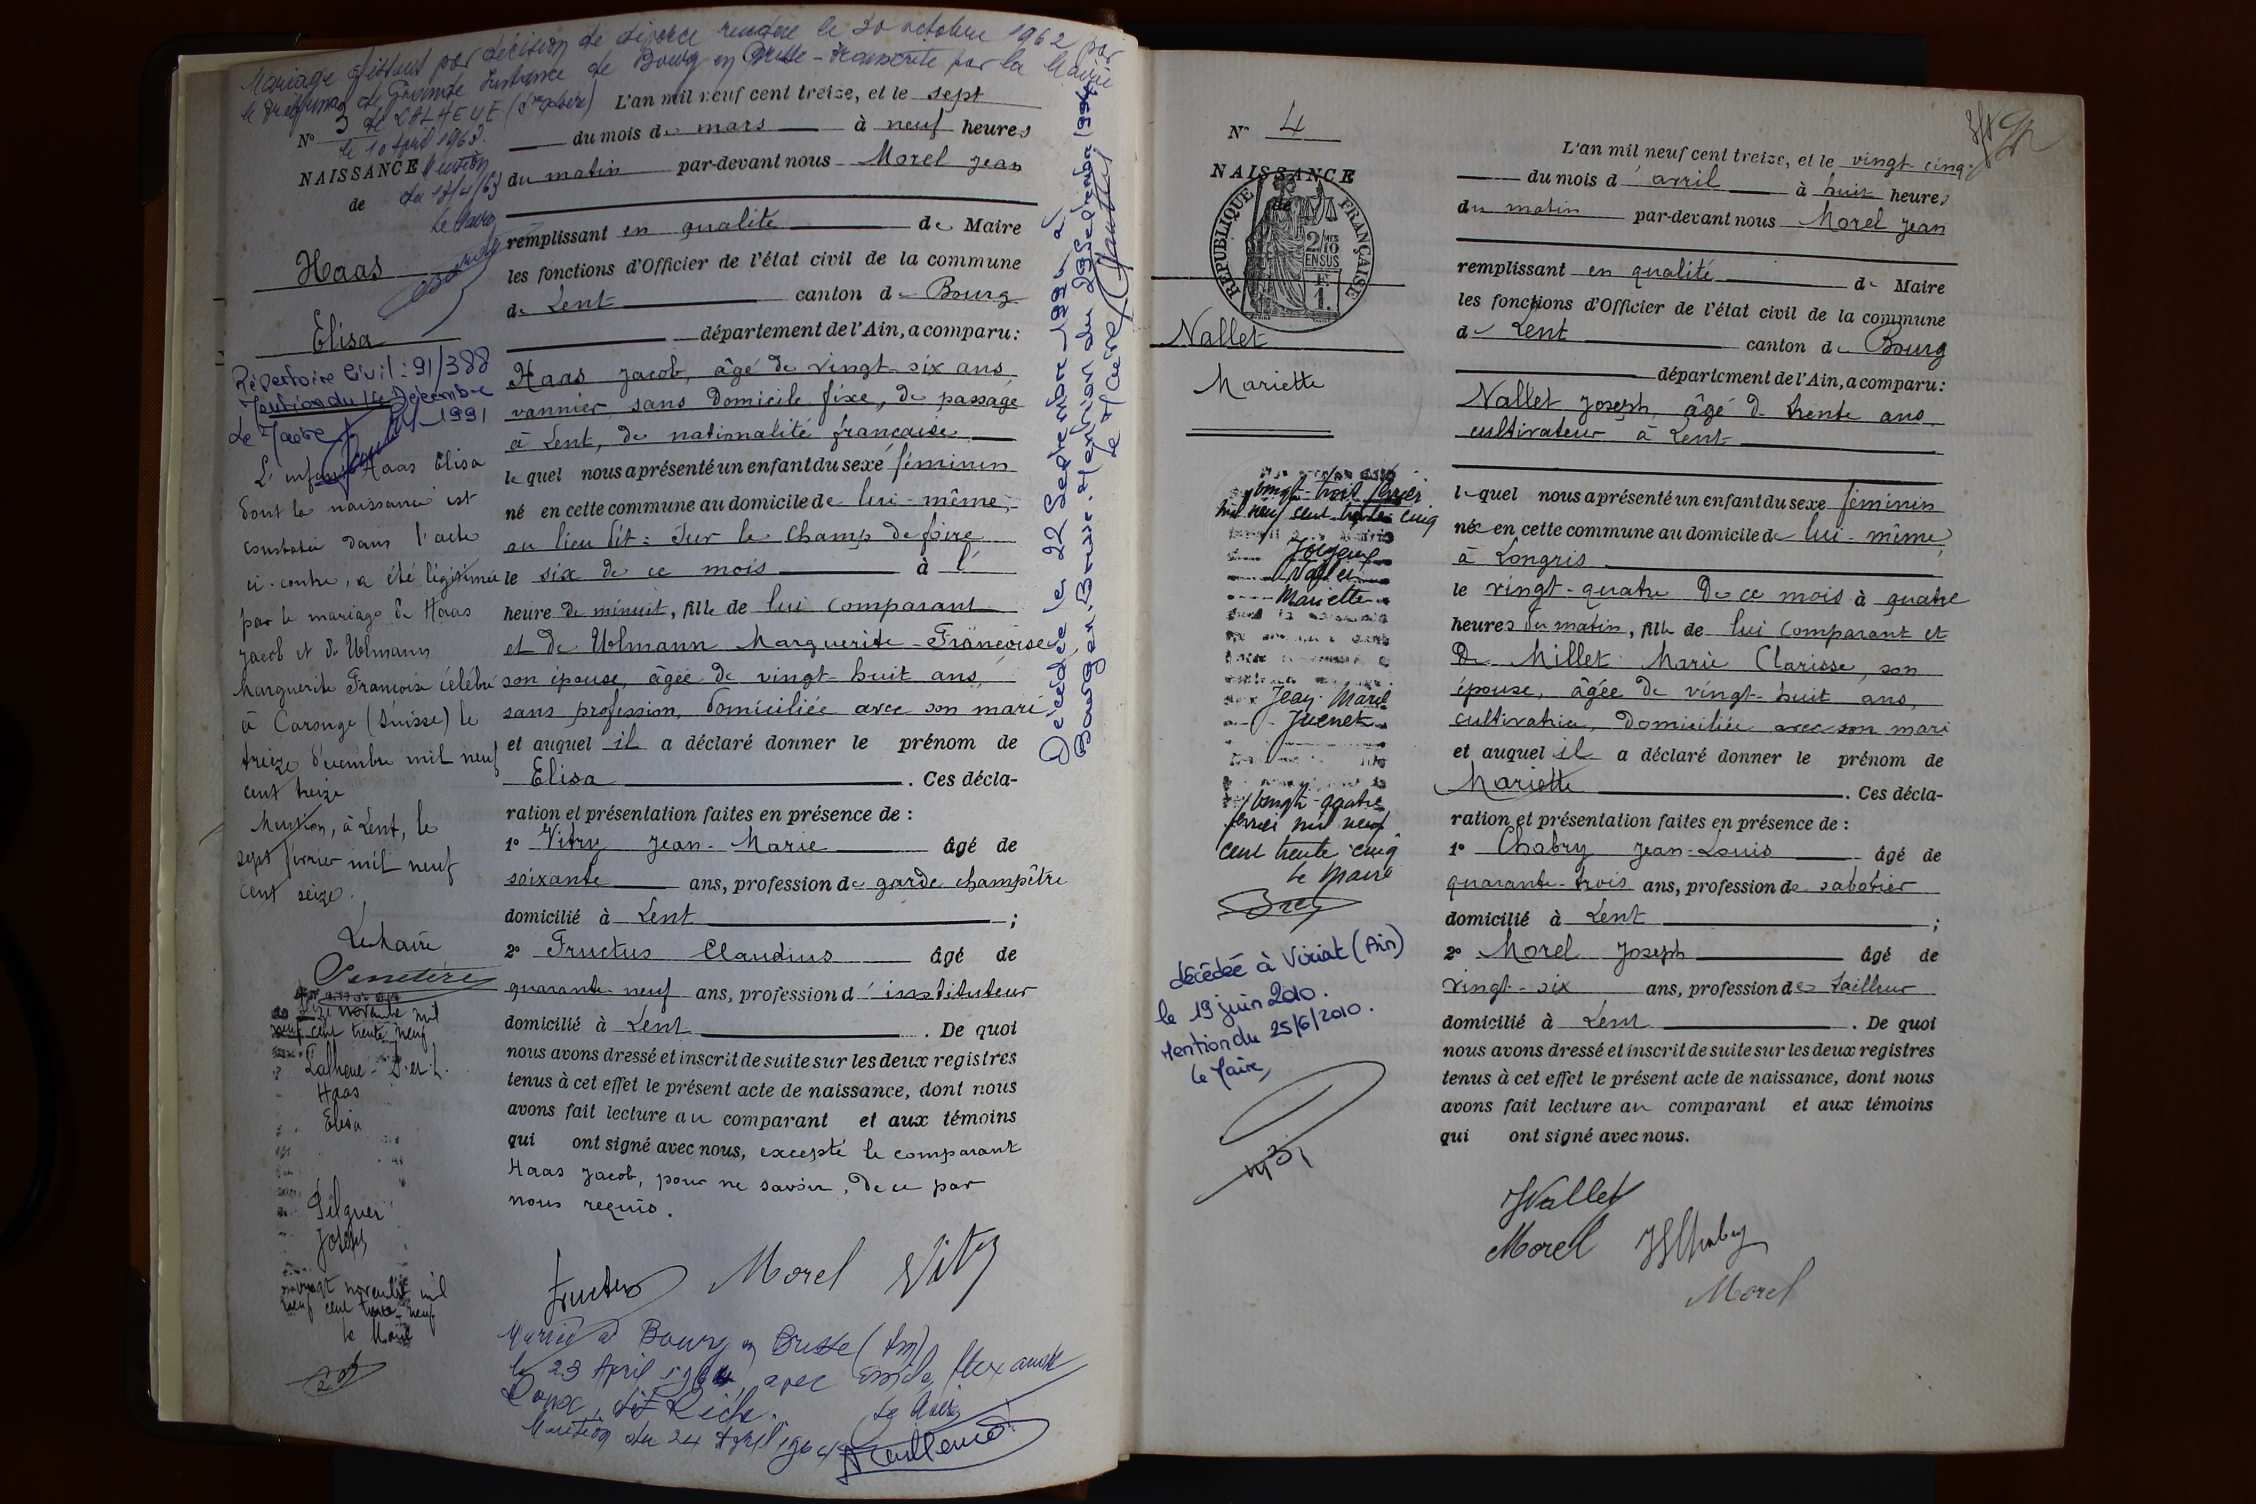 Mariage dissous par décision de divorce rendue le 30 octobre 1962 par
le tribunal de Grande Instance de Bourg en Bresse - transcrite par la Mairie
de LALHEUE
le 10 Avril 1963.
Mention
du 17/4/63
Le Maire
N° 3
NAISSANCE
de
Haas
Elisa
Répertoire Civil : 91/388
Mention du 14 Décembre
1991
Le Maire
L'enfant Haas Elisa
dont la naissance est
constatée dans l'acte
ci-contre, a été légitimée
par le mariage de Haas
Jacob et de Ulmann
Marguerite Françoise célébré
à Carouge (Suisse) le
treize décembre mil neuf
cent treize
Mention, à Lent, le
sept février mil neuf
cent seize.
Le Maire
novembre mil
neuf cent trente neuf
Lalheue - S. et L.
Haas
Elisa
Joseph
vingt novembre mil
neuf cent trente-neuf
le Maire
L'an mil neuf cent treize, et le sept
du mois de mars à neuf heures
du matin par-devant nous Morel Jean
remplissant en qualité de Maire
les fonctions d'Officier de l'état civil de la commune
de Lent canton de Bourg
département de l'Ain, a comparu :
Haas Jacob, âgé de vingt-six ans,
vannier, sans domicile fixe, de passage
à Lent, de nationalité française
lequel nous a présenté un enfant du sexe féminin
né en cette commune au domicile de lui-même,
au lieu dit : Sur le Champ de foire
le six de ce mois à l'
heure de minuit, fille de lui comparant
et de Ulmann Marguerite-Françoise
son épouse, âgée de vingt-huit ans,
sans profession, domiciliée avec son mari
et auquel il a déclaré donner le prénom de
Elisa. Ces décla-
ration et présentation faites en présence de :
1° Vitry Jean-Marie âgé de
soixante ans, profession de garde champêtre
domicilié à Lent ;
2° Fructus Claudius âgé de
quarante-neuf ans, profession d'instituteur
domicilié à Lent. De quoi
nous avons dressé et inscrit de suite sur les deux registres
tenus à cet effet le présent acte de naissance, dont nous
avons fait lecture au comparant et aux témoins
qui ont signé avec nous, excepté le comparant
Haas Jacob, pour ne savoir, de ce par
nous requis.
Fructus Morel Vitry
Mariée à Bourg en Bresse (Ain)
le 23 Avril 1964 avec Emile Alexandre
Mention du 24 Avril 1964
Le Maire
Décédée le 22 Septembre 1994 à
Bourg en Bresse. Mention du 29 Septembre 1994
Le Maire
N° 4
NAISSANCE
de
RÉPUBLIQUE FRANÇAISE
2/10 MES
EN SUS
F
1.
Nallet
Mariette
vingt-trois février
mil neuf cent trente cinq
Nallet
Mariette
Jean-Marie
vingt-quatre
février mil neuf
cent trente cinq
Le Maire
décédée à Viriat (Ain)
le 19 juin 2010.
Mention du 25/6/2010.
Le Maire,
L'an mil neuf cent treize, et le vingt-cinq
du mois d'avril à huit heures
du matin par-devant nous Morel Jean
remplissant en qualité de Maire
les fonctions d'Officier de l'état civil de la commune
de Lent canton de Bourg
département de l'Ain, a comparu :
Nallet Joseph, âgé de trente ans
cultivateur à Lent
lequel nous a présenté un enfant du sexe féminin
née en cette commune au domicile de lui-même,
à Longris
le vingt-quatre de ce mois à quatre
heures du matin, fille de lui comparant et
de Millet Marie Clarisse, son
épouse, âgée de vingt-huit ans,
cultivatrice, domiciliée avec son mari
et auquel il a déclaré donner le prénom de
Mariette. Ces décla-
ration et présentation faites en présence de :
1° Chabry Jean-Louis âgé de
quarante-trois ans, profession de sabotier
domicilié à Lent ;
2° Morel Joseph âgé de
vingt-six ans, profession de tailleur
domicilié à Lent. De quoi
nous avons dressé et inscrit de suite sur les deux registres
tenus à cet effet le présent acte de naissance, dont nous
avons fait lecture au comparant et aux témoins
qui ont signé avec nous.
JNallet
Morel JLChabry
Morel